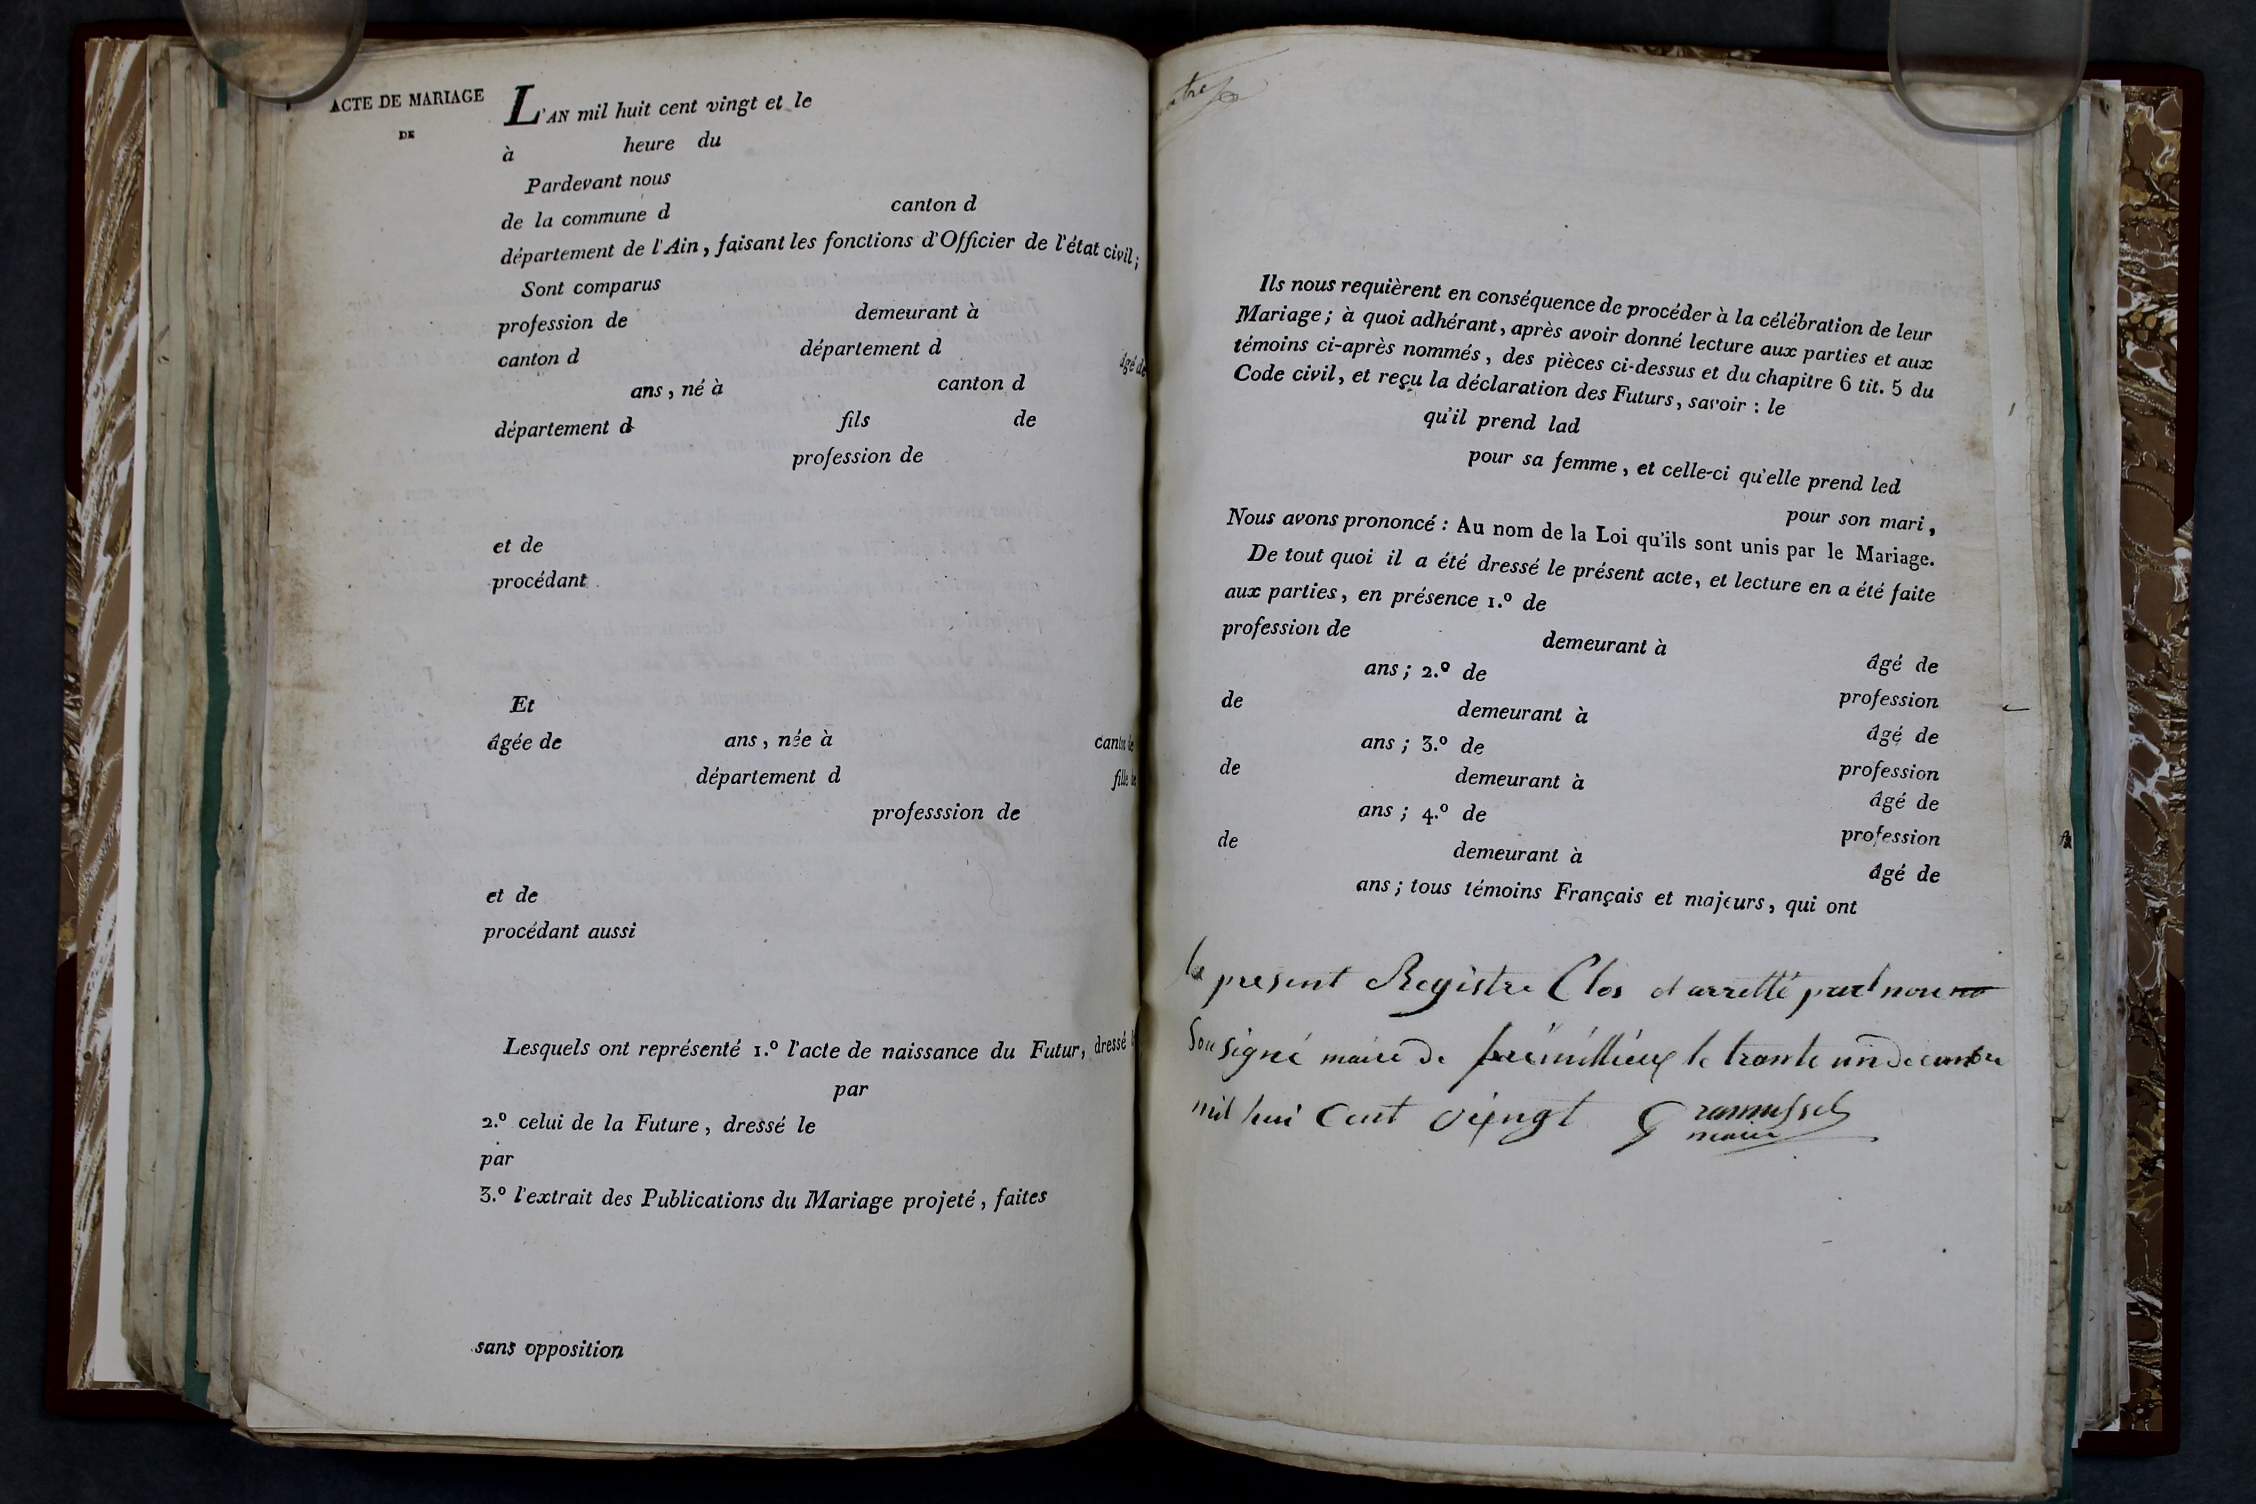 ACTE DE MARIAGE
DE
L'AN mil huit cent vingt et le
à heure du
Pardevant nous
de la commune d canton d
département de l'Ain, faisant les fonctions d'Officier de l'état civil;
Sont comparus
profession de demeurant à
canton d département d âgé de
ans, né à canton d
département d fils de
profession de
et de
procédant
Et
âgée de ans, née à canton de
département d fille de
professsion de
et de
procédant aussi
Lesquels ont représenté 1.º l'acte de naissance du Futur, dressé
par
2.º celui de la Future, dressé le
par
3.º l'extrait des Publications du Mariage projeté, faites
sans opposition
Ils nous requièrent en conséquence de procéder à la célébration de leur
Mariage; à quoi adhérant, après avoir donné lecture aux parties et aux
témoins ci-après nommés, des pièces ci-dessus et du chapitre 6 tit. 5 du
Code civil, et reçu la déclaration des Futurs, savoir : le
qu'il prend lad
pour sa femme, et celle-ci qu'elle prend led
pour son mari,
Nous avons prononcé : Au nom de la Loi qu'ils sont unis par le Mariage.
De tout quoi il a été dressé le présent acte, et lecture en a été faite
aux parties, en présence 1.º de
profession de demeurant à âgé de
ans; 2.º de profession
de demeurant à âgé de
ans; 3.º de profession
de demeurant à âgé de
ans; 4.º de profession
de demeurant à âgé de
ans; tous témoins Français et majeurs, qui ont
le present Registre Clos et arretté par nous
Sousigné maire de le trante un decembre
mil hui Cent vingt
maire